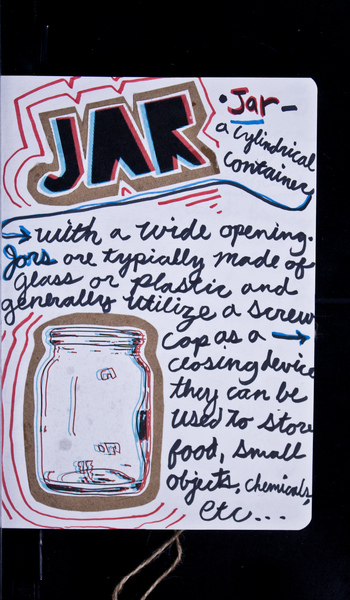 JAR
• Jar –
a cylindrical
container
with a wide opening.
Jars are typically made of
glass or plastic and
generally utilize a screw
cap as a
closing device
they can be
used to store
food, small
objects, chemicals,
etc...